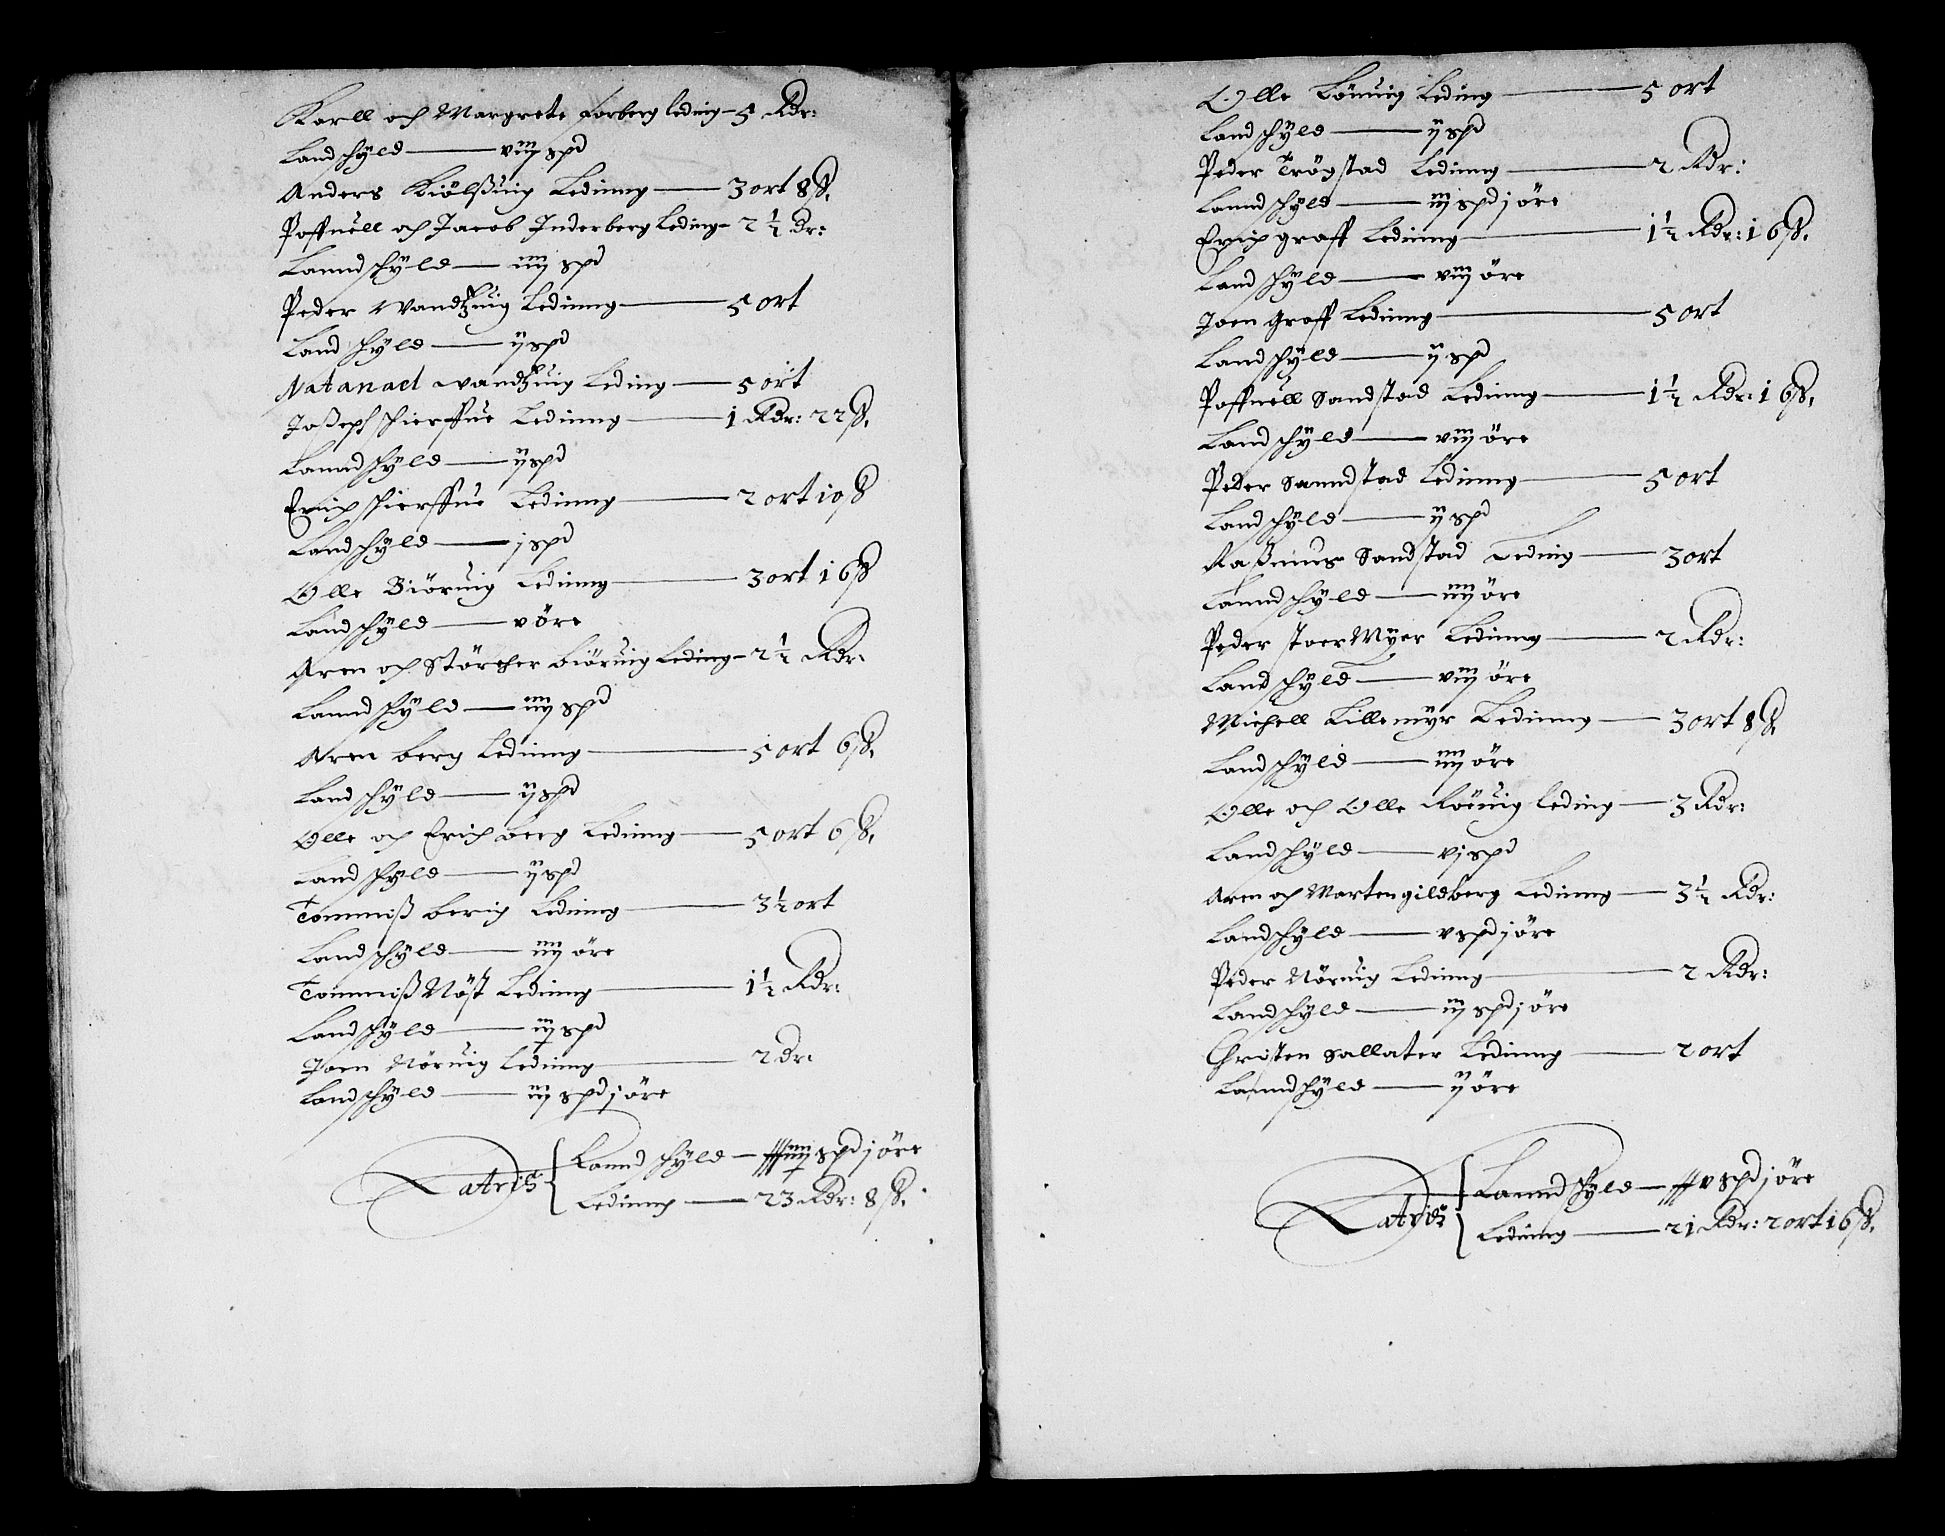 Karll och Margrete Forberg leding – 5 Rdr:
Landschÿld — viij spd
Anders Kiölßuig Ledinng — 3 ort 8 ß.
Poffuell och Jacob Inderberg Leding – 2½ dr:
Lanndschÿld — iiij spd
Peder Wandzuig Ledinng — 5 ort
Landschÿld — ij spd
Natanael wandzuig Leding — 5 ort
Joßeph schierffue Ledinng — 1 Rdr: 22 ß.
Lanndschÿld — ij spd
Erich schierffue Ledinng — 2 ort 10 ß
Landschÿld — j spd
Olle Biöruig Ledinng — 3 ort 16 ß
Landschÿld — v öre
Aren och Störcher Biöruig Leding – 2½ Rdr:
Lanndschÿld — iiij spd
Aren berg Ledinng — 5 ort 6 ß.
Landschÿld — ij spd
Olle och Erich berg Ledinng — 5 ort 6 ß.
Landschÿld — ij spd
Tommiß berig Ledinng — 3½ ort
Landschÿld — iiij öre
Tommiß Nöst Ledinng — 1½ Rdr:
Landschÿld — iij spd
Joen Nöruig Ledinng — 2 dr:
Landschÿld — iij spd j öre
Lateris { Lannd schÿld — spd j öre
Ledinng — 23 Rdr: 8 ß.
Olle Lönuig Leding — 5 ort
Landschÿld — ij spd
Peder Trögstad Ledinng — 2 Rdr:
Lanndschÿld — iij spd j öre
Erich graff Ledinng — 1½ Rdr: 16 ß.
Landschÿld — viij öre
Joen Graff Ledinng — 5 ort
Landschÿld — ij spd
Poffuell Sandstad Ledinng — 1½ Rdr: 16 ß.
Landschÿld — viij öre
Peder Sanndstad Ledinng — 5 ort
Landschÿld — ij spd
Raßmus Sandstad Leding — 3 ort
Lanndschÿld — iiij öre
Peder stoer Mÿer Ledinng — 2 Rdr:
Landschÿld — viij öre
Michell Lillemÿr Ledinng — 3 ort 8 ß.
Landschÿld — iiij öre
Olle och Olle Röeuig leding — 3 Rdr:
Landschÿld — vj spd
Aren och Marten gildberg Ledinng — 3½ Rdr:
Landschÿld — v spd j öre
Peder Nöruig Ledinng — 2 Rdr:
Landschÿld — iij spd j öre
Christen Sallater Ledinng — 2 ort
Lanndschÿld — ij öre
Lateris { Lanndschÿld — v spd j öre
Ledinng — 21 Rdr: 2 ort 16 ß.